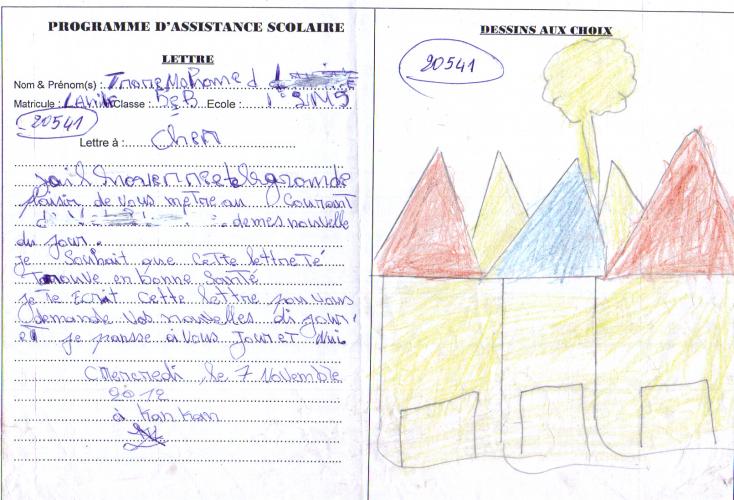 PROGRAMME D'ASSISTANCE SCOLAIRE
LETTRE
Nom & Prénom(s) : Traore Mohamed
Matricule : Classe : Ecole :
20541
Lettre à : Cher
jai l'honneur et le grande
plaisir de vous metre au Courant
de mes nouvelle
du jour.
je Souhait que Cette lettre Té
Trouve en bonne Santé
je Te Ecrit Cette lettre pou vous
demande vos nouvelles di jour
et je pansse à vous jour et nui
Mercredi, le 7 Novembre
2012
à Kan Kan
DESSINS AUX CHOIX
20541